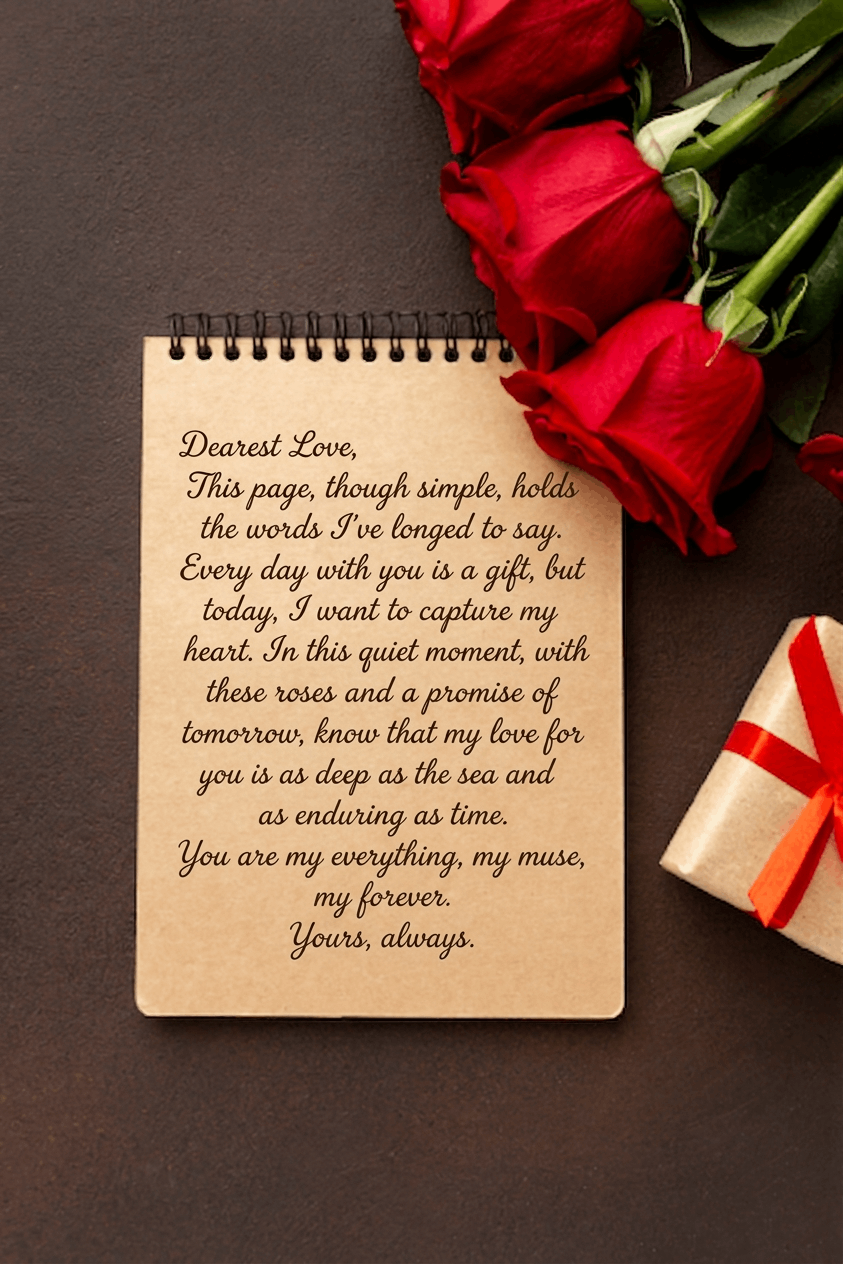 Dearest Love,
This page, though simple, holds
the words I've longed to say.
Every day with you is a gift, but
today, I want to capture my
heart. In this quiet moment, with
these roses and a promise of
tomorrow, know that my love for
you is as deep as the sea and
as enduring as time.
You are my everything, my muse,
my forever.
Yours, always.